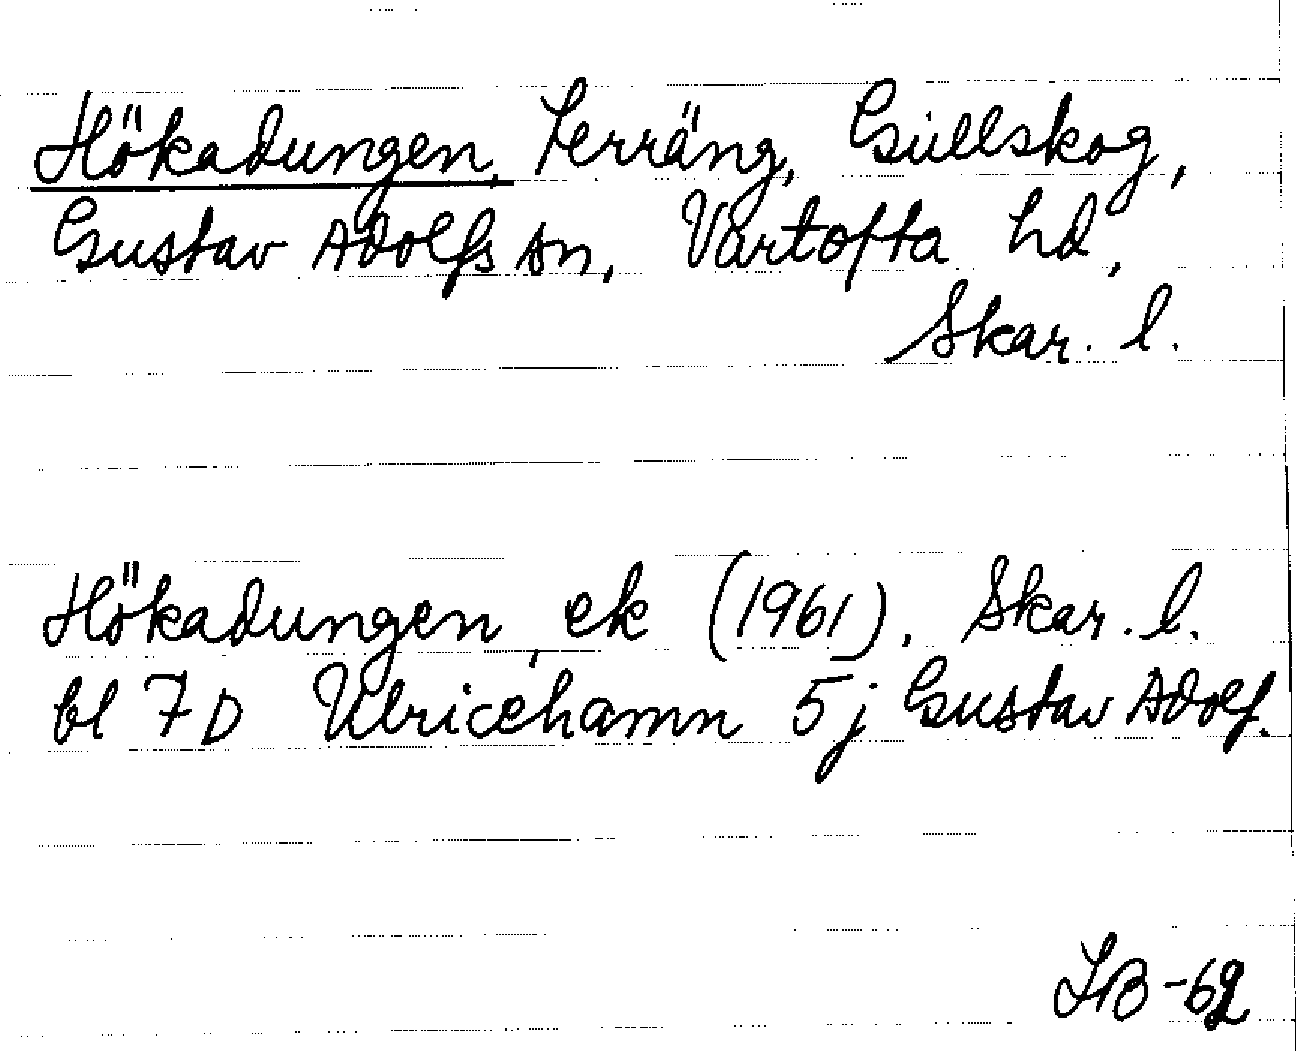 Hökadungen, Terräng, Gullskog,
Gustav Adolfs sn, Vartofta hd,
Skar. l.
Hökadungen, ek (1961). Skar. l.
bl 7D Ulricehamn 5j Gustav Adolf.